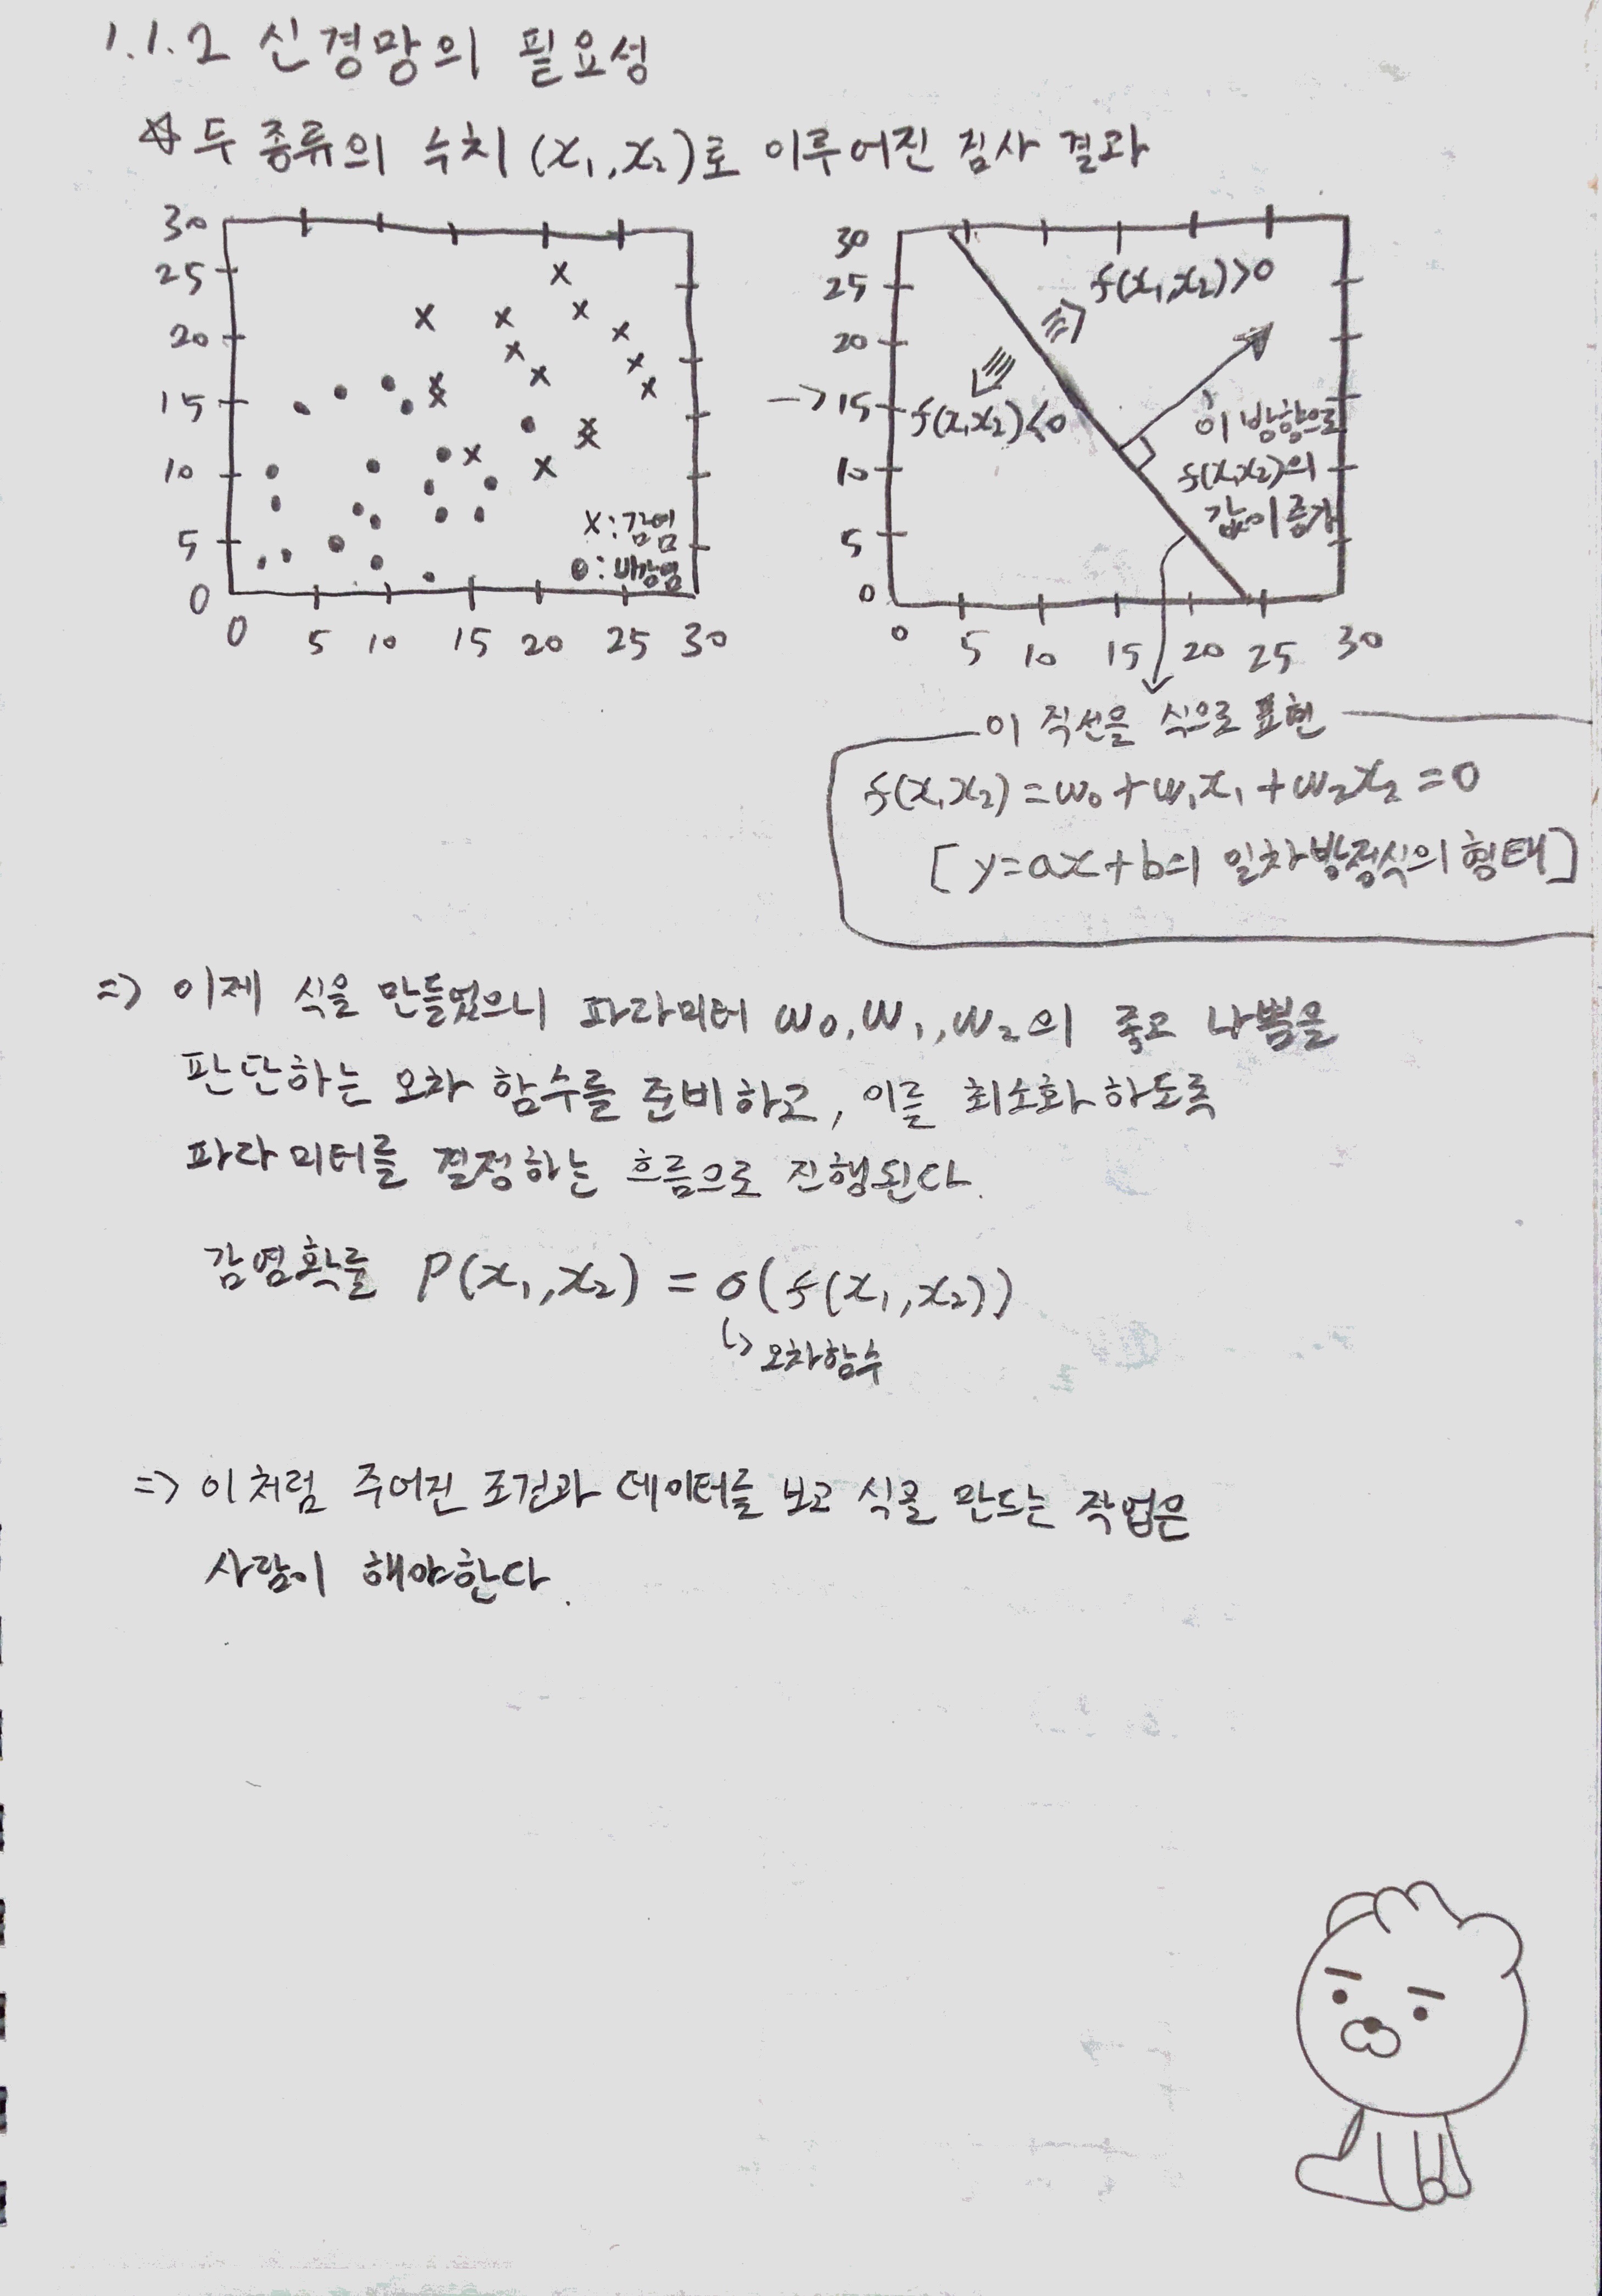 1.1.2 신경망의 필요성
☆ 두 종류의 수치 (x₁,x₂)로 이루어진 검사 결과
30
25
20
15
10
5
0
0 5 10 15 20 25 30
x : 감염
● : 비감염
30
25
20
-> 15
10
5
0
0 5 10 15 20 25 30
f(x₁,x₂)>0
f(x,x₂)<0
이 방향으로
f(x,x₂)의
값이 증가
이 직선을 식으로 표현
f(x,x₂) = w₀ + w₁x₁ + w₂x₂ = 0
[ y=ax+b의 일차방정식의 형태]
=> 이제 식을 만들었으니 파라미터 w₀, w₁, w₂의 좋고 나쁨을
판단하는 오차 함수를 준비하고, 이를 최소화 하도록
파라미터를 결정하는 흐름으로 진행된다.
감염확률 P(x₁,x₂) = σ(f(x₁,x₂))
↳ 오차함수
=> 이처럼 주어진 조건과 데이터를 보고 식을 만드는 작업은
사람이 해야한다.